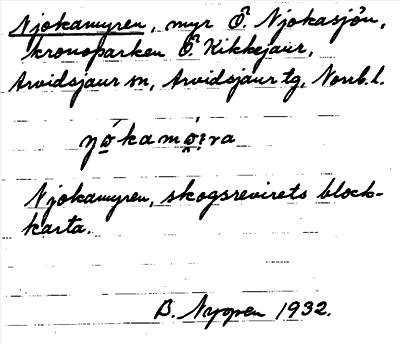 Njokamyren, myr Ö. Njokasjön,
kronoparken Ö. Kikkejaur,
Arvidsjaur sn, Arvidsjaur tg, Norrb. l.
Njokamyren, skogsrevirets block-
karta.
B. Nyopen 1932.